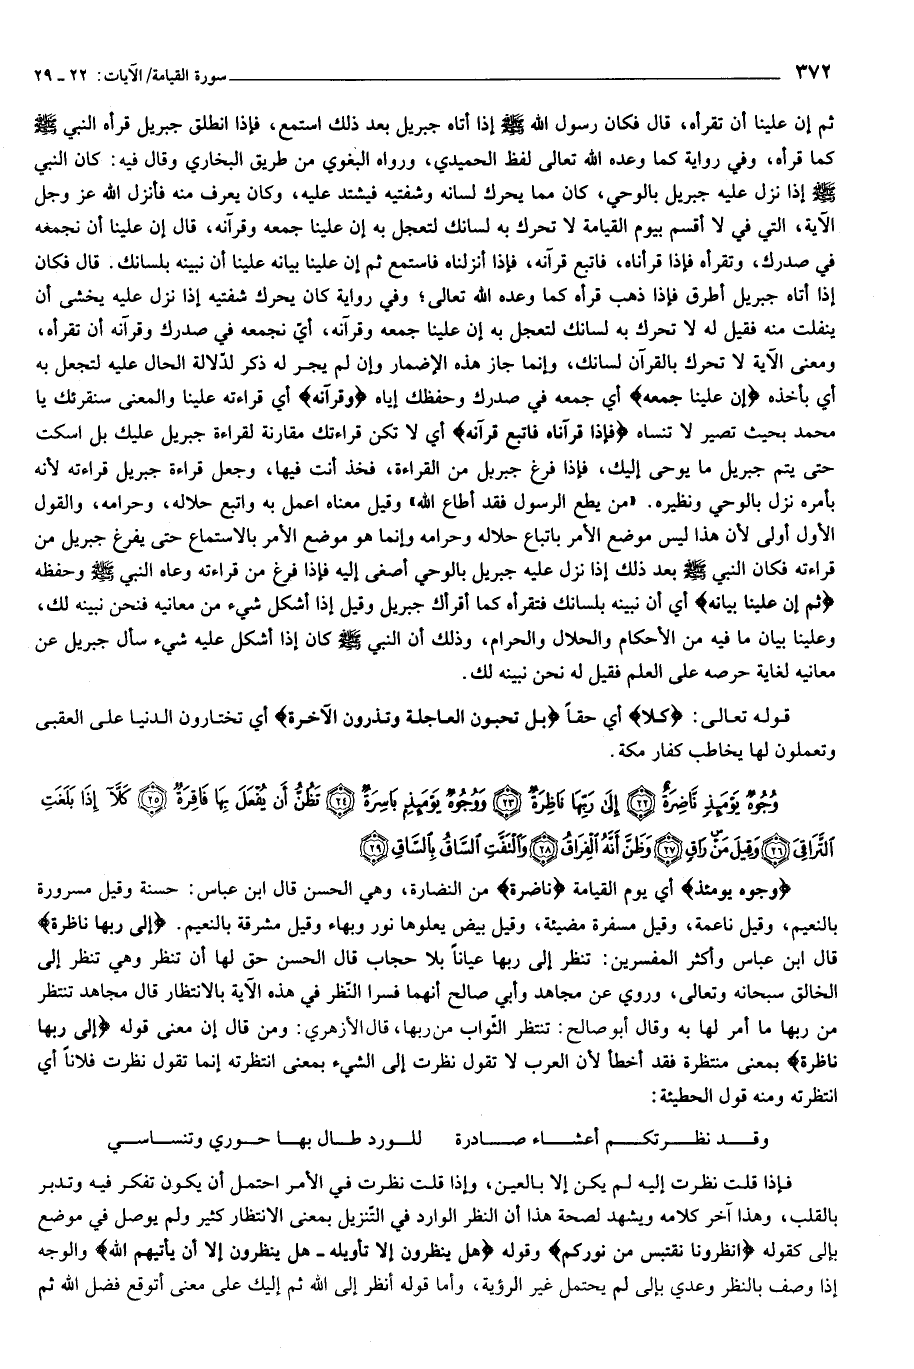 ٣٧٢ ــــــــــــــــــــ سورة القيامة/ الآيات: ٢٢ ـ ٢٩
ثم إن علينا أن تقرأه، قال فكان رسول الله ﷺ إذا أتاه جبريل بعد ذلك استمع، فإذا انطلق جبريل قرأه النبي ﷺ
كما قرأه، وفي رواية كما وعده الله تعالى لفظ الحميدي، ورواه البغوي من طريق البخاري وقال فيه: كان النبي
ﷺ إذا نزل عليه جبريل بالوحي، كان مما يحرك لسانه وشفتيه فيشتد عليه، وكان يعرف منه فأنزل الله عز وجل
الآية، التي في لا أقسم بيوم القيامة لا تحرك به لسانك لتعجل به إن علينا جمعه وقرآنه، قال إن علينا أن نجمعه
في صدرك، وتقرأه فإذا قرأناه، فاتبع قرآنه، فإذا أنزلناه فاستمع ثم إن علينا بيانه علينا أن نبينه بلسانك. قال فكان
إذا أتاه جبريل أطرق فإذا ذهب قرأه كما وعده الله تعالى؛ وفي رواية كان يحرك شفتيه إذا نزل عليه يخشى أن
ينفلت منه فقيل له لا تحرك به لسانك لتعجل به إن علينا جمعه وقرآنه، أيّ نجمعه في صدرك وقرآنه أن تقرأه،
ومعنى الآية لا تحرك بالقرآن لسانك، وإنما جاز هذه الإضمار وإن لم يجر له ذكر لدّلالة الحال عليه لتجعل به
أي بأخذه ﴿إن علينا جمعه﴾ أي جمعه في صدرك وحفظك إياه ﴿وقرآنه﴾ أي قراءته علينا والمعنى سنقرئك يا
محمد بحيث تصير لا تنساه ﴿فإذا قرآناه فاتبع قرآنه﴾ أي لا تكن قراءتك مقارنة لقراءة جبريل عليك بل اسكت
حتى يتم جبريل ما يوحى إليك، فإذا فرغ جبريل من القراءة، فخذ أنت فيها، وجعل قراءة جبريل قراءته لأنه
بأمره نزل بالوحي ونظيره. «من يطع الرسول فقد أطاع الله» وقيل معناه اعمل به واتبع حلاله، وحرامه، والقول
الأول أولى لأن هذا ليس موضع الأمر باتباع حلاله وحرامه وإنما هو موضع الأمر بالاستماع حتى يفرغ جبريل من
قراءته فكان النبي ﷺ بعد ذلك إذا نزل عليه جبريل بالوحي أصغى إليه فإذا فرغ من قراءته وعاه النبي ﷺ وحفظه
﴿ثم إن علينا بيانه﴾ أي أن نبينه بلسانك فتقرأه كما أقرأك جبريل وقيل إذا أشكل شيء من معانيه فنحن نبينه لك،
وعلينا بيان ما فيه من الأحكام والحلال والحرام، وذلك أن النبي ﷺ كان إذا أشكل عليه شيء سأل جبريل عن
معانيه لغاية حرصه على العلم فقيل له نحن نبينه لك.
قوله تعالى: ﴿كلا﴾ أي حقاً ﴿بل تحبون العاجلة وتذرون الآخرة﴾ أي تختارون الدنيا على العقبى
وتعملون لها يخاطب كفار مكة.
وُجُوهٌ يَوْمَئِذٍ نَّاضِرَةٌ ﴿٢٢﴾ إِلَىٰ رَبِّهَا نَاظِرَةٌ ﴿٢٣﴾ وَوُجُوهٌ يَوْمَئِذٍ بَاسِرَةٌ ﴿٢٤﴾ تَظُنُّ أَن يُفْعَلَ بِهَا فَاقِرَةٌ ﴿٢٥﴾ كَلَّآ إِذَا بَلَغَتِ
ٱلتَّرَاقِىَ ﴿٢٦﴾ وَقِيلَ مَنْ رَاقٍ ﴿٢٧﴾ وَظَنَّ أَنَّهُ ٱلْفِرَاقُ ﴿٢٨﴾ وَٱلْتَفَّتِ ٱلسَّاقُ بِٱلسَّاقِ ﴿٢٩﴾
﴿وجوه يومئذ﴾ أي يوم القيامة ﴿ناضرة﴾ من النضارة، وهي الحسن قال ابن عباس: حسنة وقيل مسرورة
بالنعيم، وقيل ناعمة، وقيل مسفرة مضيئة، وقيل بيض يعلوها نور وبهاء وقيل مشرقة بالنعيم. ﴿إلى ربها ناظرة﴾
قال ابن عباس وأكثر المفسرين: تنظر إلى ربها عياناً بلا حجاب قال الحسن حق لها أن تنظر وهي تنظر إلى
الخالق سبحانه وتعالى، وروي عن مجاهد وأبي صالح أنهما فسرا النّظر في هذه الآية بالانتظار قال مجاهد تنتظر
من ربها ما أمر لها به وقال أبو صالح: تنتظر الثّواب من ربها، قال الأزهري: ومن قال إن معنى قوله ﴿إلى ربها
ناظرة﴾ بمعنى منتظرة فقد أخطأ لأن العرب لا تقول نظرت إلى الشيء بمعنى انتظرته إنما تقول نظرت فلاناً أي
انتظرته ومنه قول الحطيئة:
وقـد نظـرتكـم أعشـاء صـادرة للـورد طـال بهـا حـوري وتنسـاسـي
فإذا قلت نظرت إليه لم يكن إلا بالعين، وإذا قلت نظرت في الأمر احتمل أن يكون تفكر فيه وتدبر
بالقلب، وهذا آخر كلامه ويشهد لصحة هذا أن النظر الوارد في التّنزيل بمعنى الانتظار كثير ولم يوصل في موضع
بإلى كقوله ﴿انظرونا نقتبس من نوركم﴾ وقوله ﴿هل ينظرون إلا تأويله ـ هل ينظرون إلا أن يأتيهم الله﴾ والوجه
إذا وصف بالنظر وعدي بإلى لم يحتمل غير الرؤية، وأما قوله أنظر إلى الله ثم إليك على معنى أتوقع فضل الله ثم